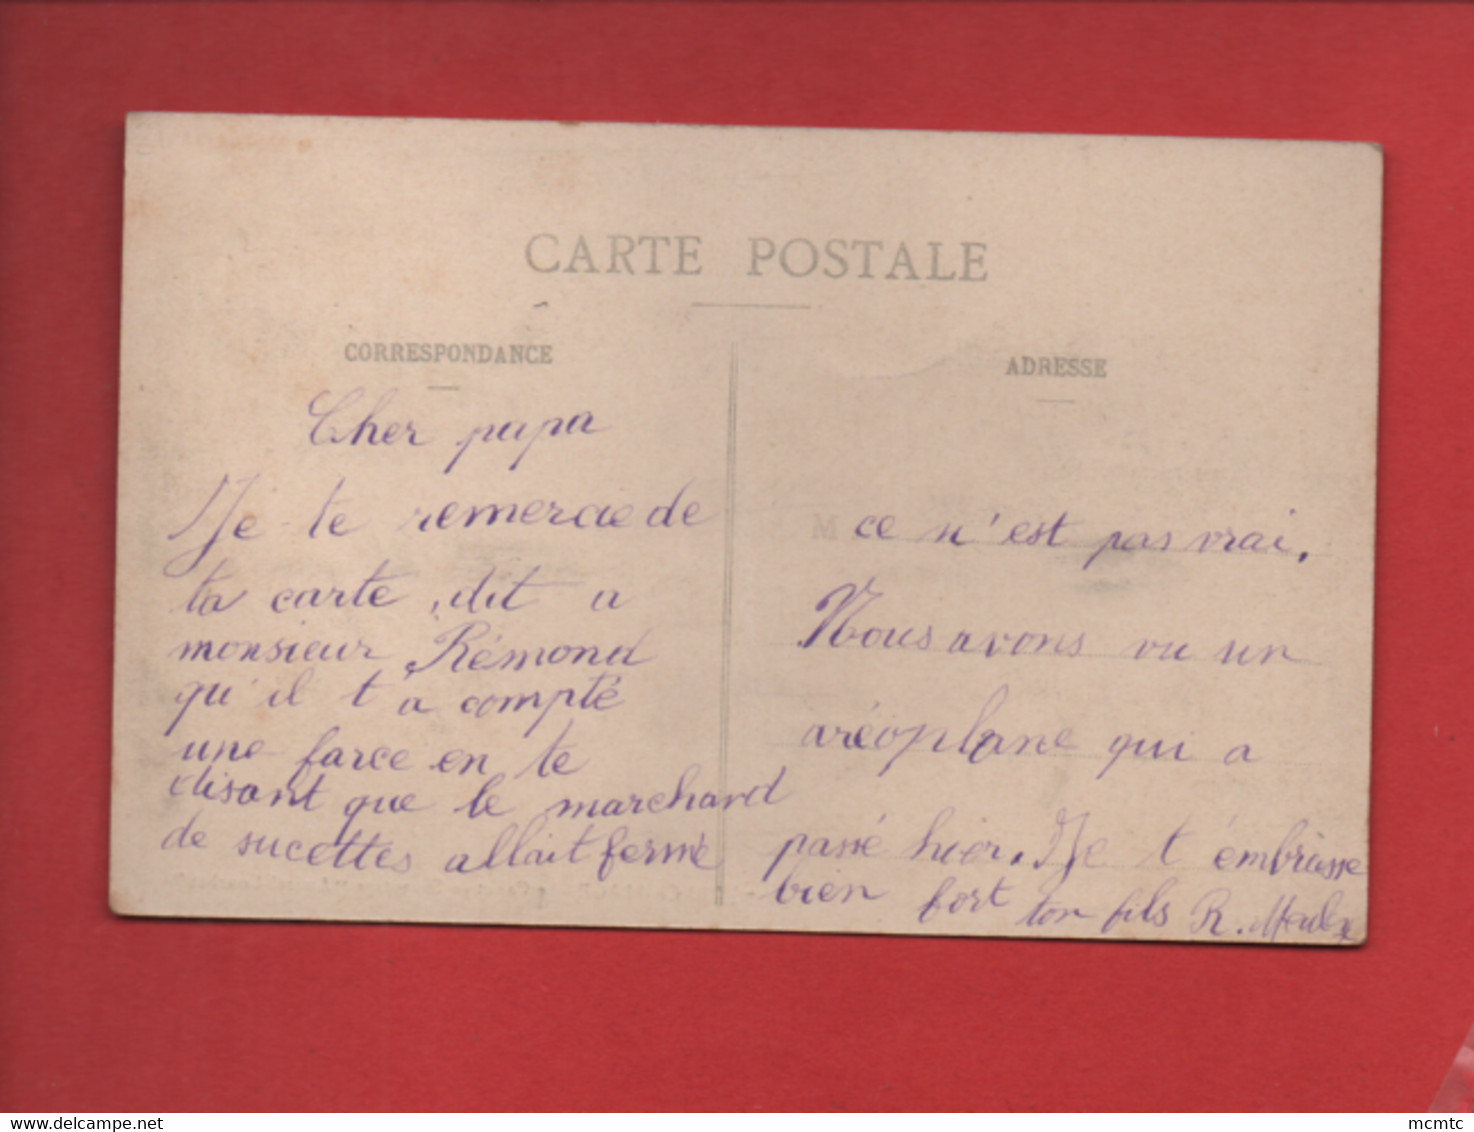 CARTE POSTALE
CORRESPONDANCE
Cher papa
Je te remercie de
ta carte, dit a
monsieur Rémond
qu'il t'a compté
une farce en te
disant que le marchand
de sucettes allait fermé
ADRESSE
M
ce n'est pas vrai.
Nous avons vu un
aréoplane qui a
passé hier. Je t'émbrasse
bien fort ton fils R.
delcampe.net
mcmtc